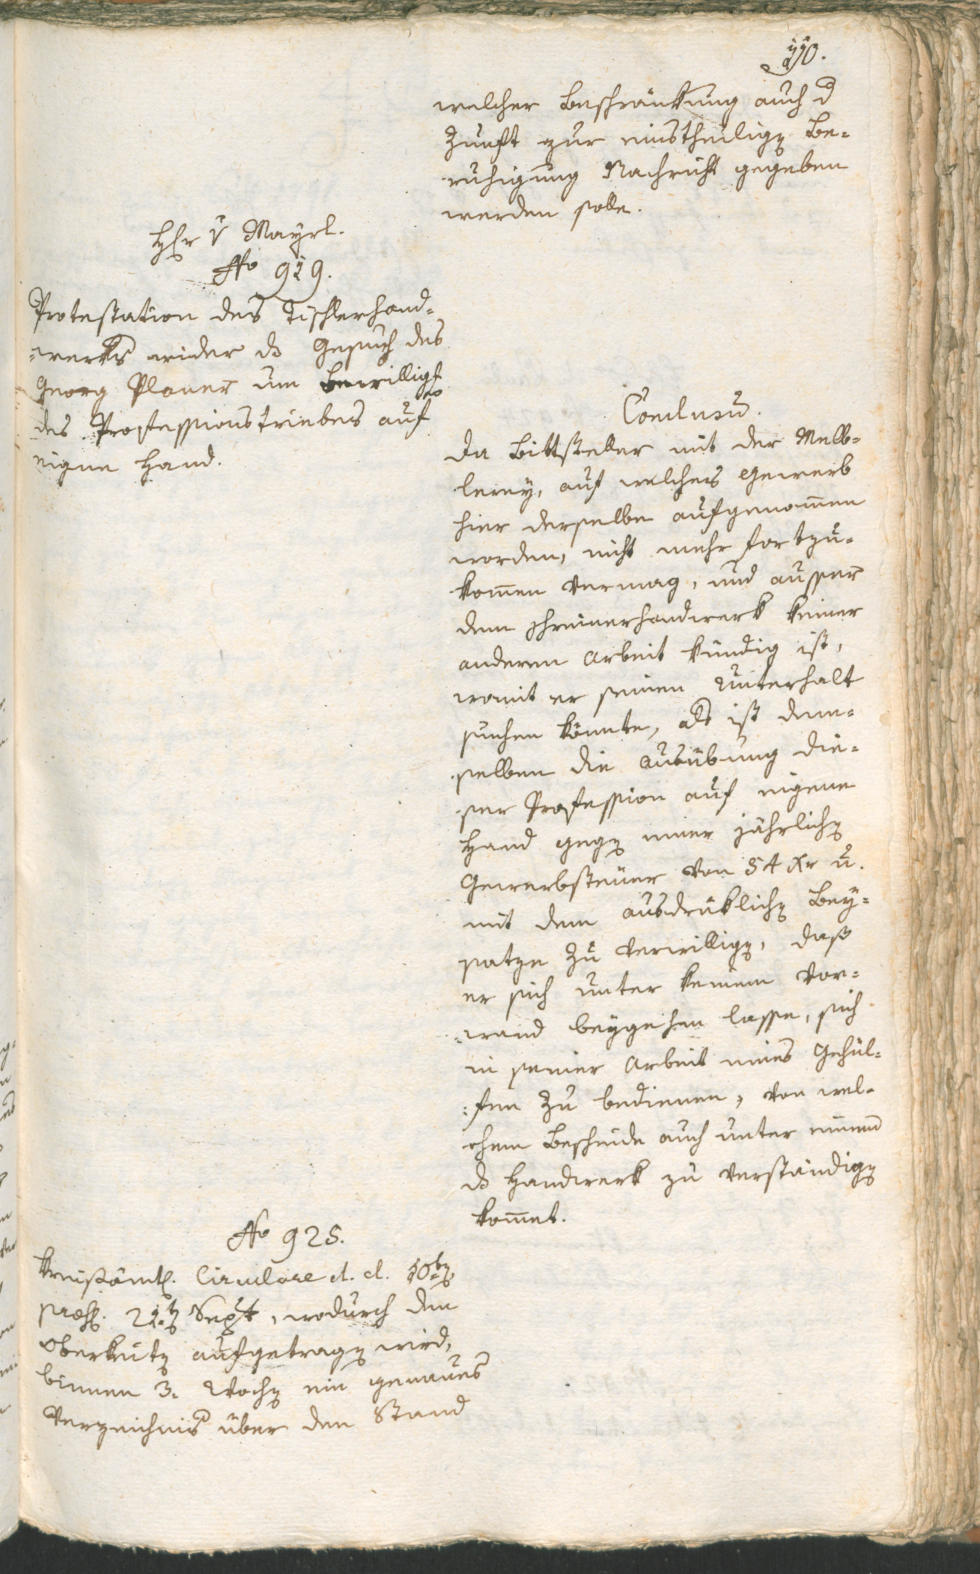 110.
welcher Beschränkung auch d
Zunft zur einstheiligen Be-
ruhigung Nachricht gegeben
werden solle.
Hr v Mayrl.
No 919.
Protestation des Tischlerhand-
-werks wider das Gesuch des
Georg Planer um Bewilligg
des Professionstriebes auf
eigne Hand.
Conclusum.
Da Bittsteller mit der Melb-
lerey, auf welches Gewerb
hier derselbe aufgenommen
worden, nicht mehr fortzu-
kommen vermag, und ausser
dem Schreinerhandwerk keiner
anderen Arbeit kündig ist,
womit er seinen Unterhalt
suchen könnte, als ist dem-
selben die Ausübung die-
ser Profession auf eigene
Hand gegen einer jährlichen
Gewerbsteuer von 54 Xr u.
mit dem ausdrüklichen Bey-
satze zu verwilligen, daß
er sich unter keinem Vor-
wand beygehen lasse, sich
in seiner Arbeit eines Gehül-
fen zu bedienen, von wel-
chem Bescheide auch unter einem
das Handwerk zu verständigen
kommt.
No 925.
Kreisämtl. Circulare d. d. 10ten
præs. 21ten Sept, wodurch den
Obrigkeiten aufgetragen wird,
binnen 3. Wochen ein genaues
Verzeichnis über den Stand